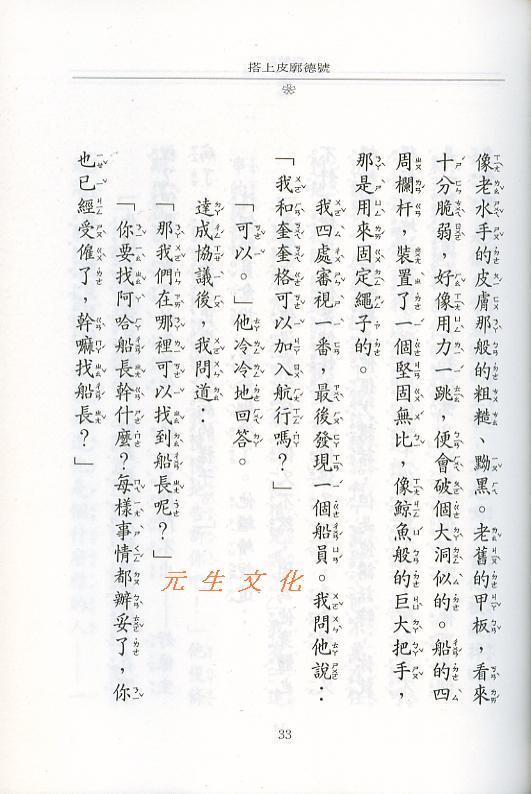 搭上皮廓德號
像老水手的皮膚那般的粗糙、黝黑。老舊的甲板,看來
十分脆弱,好像用力一跳,便會破個大洞似的。船的四
周欄杆,裝置了一個堅固無比,像鯨魚般的巨大把手,
那是用來固定繩子的。
我四處審視一番,最後發現一個船員。我問他說:
「我和奎奎格可以加入航行嗎?」
「可以。」他冷冷地回答。
達成協議後,我問道:
「那我們在哪裡可以找到船長呢?」
「你要找阿哈船長幹什麼?每樣事情都辦妥了,你
也已經受僱了,幹嘛找船長?」
元生文化
33